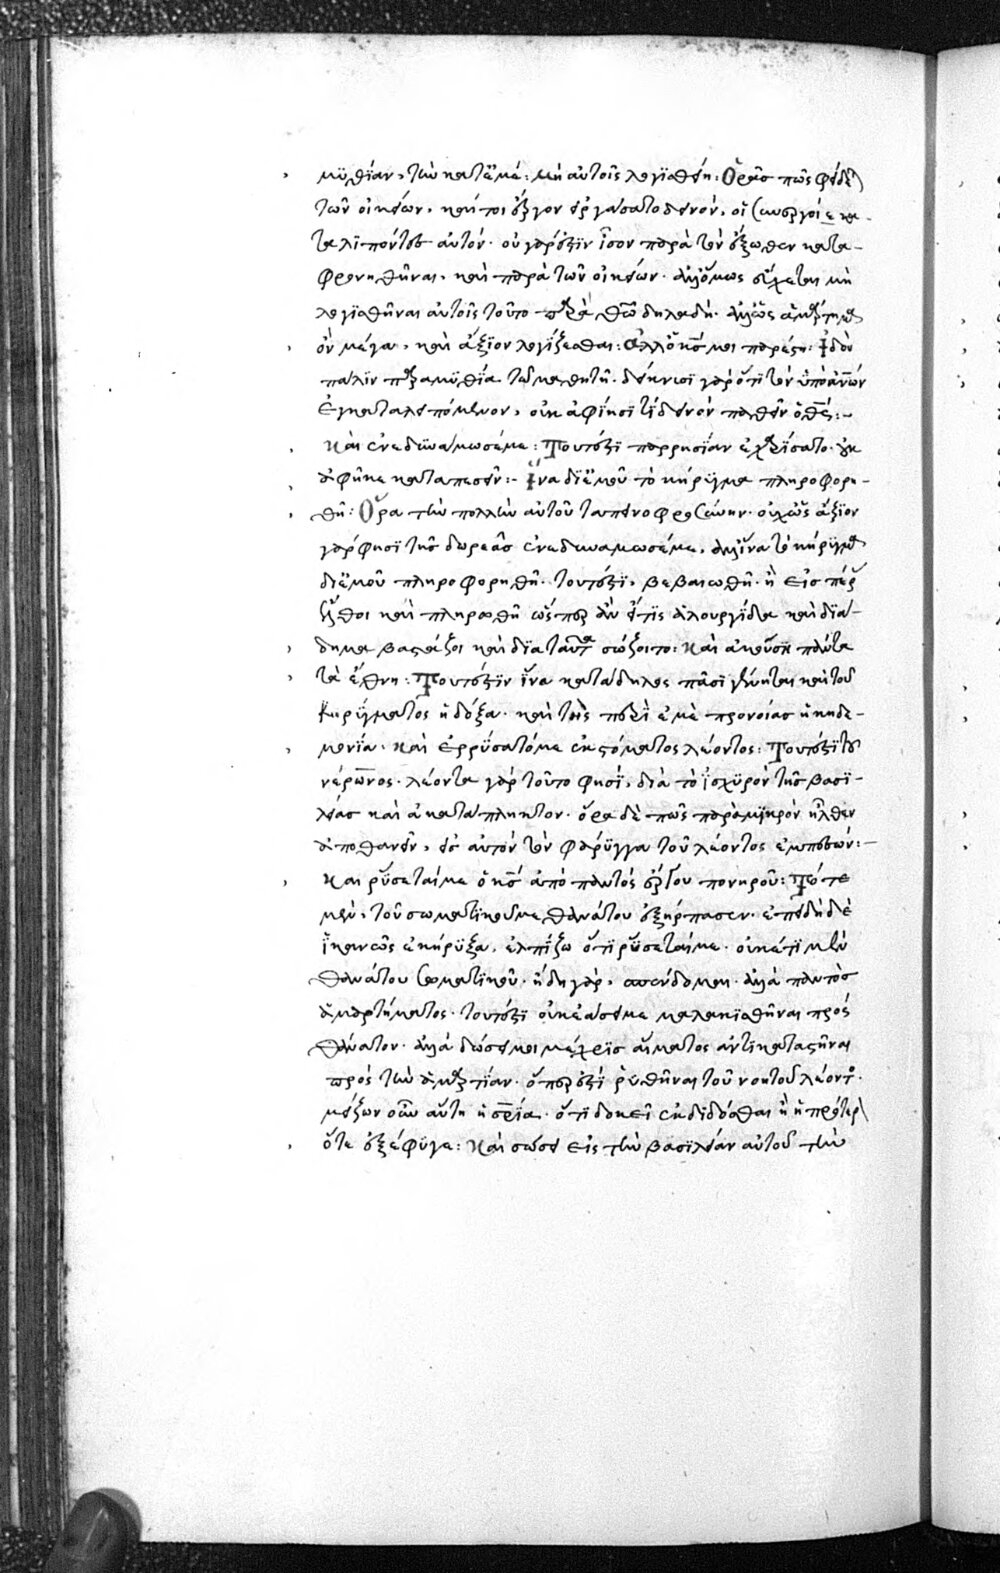 μυθίαν, τὴν κατ' ἐμέ: Μὴ αὐτοῖς λογισθείη: Ὁρᾶς πῶς φείδε
τῶν οἰκείων, καίτοι ἔργον εἰργάσατο δεινόν, οἱ συνεργοί ἐγκα-
ταλιπόντες αὐτόν. οὐ γάρ ἐστιν ἴσον παρὰ τῶν ἔξωθεν κατα-
φρονηθῆναι, καὶ παρὰ τῶν οἰκείων. ἀλλ' ὅμως εὔχεται μὴ
λογισθῆναι αὐτοῖς τοῦτο παρὰ θεῶ δηλαδή. ἄλλως ἁμάρτημα
ὂν μέγα, καὶ ἄξιον λογίζεσθαι: Ἀλλ' ὁ κς μοι παρέστη: Ἰδοὺ
πάλιν παραμυθία τῶ μαθητῆ. δείκνυσι γὰρ ὅτι τὸν ὑπὸ ἀνων
ἐγκαταλειπόμενον, οὐκ ἀφίησί τι δεινὸν παθεῖν ὁ θς:-
Καὶ ἐνεδυνάμωσέ με: Τουτέστι παρρησίαν ἐχαρίσατο. οὐκ
ἀφῆκε καταπεσεῖν:- Ἵνα δι' ἐμοῦ τὸ κήρυγμα πληροφορη-
θῆ: Ὅρα τὴν πολλὴν αὐτοῦ ταπεινοφροσύνην. οὐχ ὡς ἄξιον
γάρ φησι τῆς δωρεᾶς ἐνεδυνάμωσέ με, ἀλλ' ἵνα τὸ κήρυγμα
δι' ἐμοῦ πληροφορηθῆ. τουτέστι, βεβαιωθῆ. ἢ εἰς πέρας
ἔλθοι καὶ πληρωθῆ ὥσπερ ἂν εἴ τις ἁλουργίδα καὶ διά-
δημα βαστάζοι καὶ διὰ ταῦτα σώζοιτο: Καὶ ἀκούση πάντα
τὰ ἔθνη: Τουτέστιν ἵνα κατάδηλος πᾶσι γένηται καὶ τοῦ
κηρύγματος ἡ δόξα. καὶ τῆς περὶ ἐμὲ προνοίας ἡ κηδε-
μονία. Καὶ ἐρρύσατό με ἐκ στόματος λέοντος: Τουτέστι τοῦ
νέρωνος. λέοντα γὰρ τοῦτο φησί, διὰ τὸ ἰσχυρὸν τῆς βασι-
λείας καὶ ἀκατάπληκτον. ὅρα δὲ πῶς παρὰ μικρὸν ἦλθεν
ἀποθανεῖν, εἰς αὐτὸν τὸν φάρυγγα τοῦ λέοντος ἐμπεσών:-
Καὶ ῥύσεταί με ὁ κς ἀπὸ παντός ἔργου πονηροῦ: Τότε
μέν, τοῦ σωματικοῦ με θανάτου ἐξήρπασεν. ἐπειδὴ δὲ
ἱκανῶς ἐκήρυξα, ἐλπίζω ὅτι ῥύσεταί με. οὐκέτι μὲν
θανάτου σωματικοῦ. ἤδη γάρ, σπένδομαι. ἀλλὰ παντὸς
ἁμαρτήματος. τουτέστι οὐκ ἐάσει με μαλακισθῆναι πρός
θάνατον. ἀλλὰ δώσει μοι μέχρις αἵματος ἀντικαταστῆναι
πρός τὴν ἁμαρτίαν. ὅπερ ἐστί ῥυσθῆναι τοῦ νοητοῦ λέοντος.
μείζων οὖν αὕτη ἡ σρία. ὅτι δοκεῖ ἐκδίδοσθαι ἢ ἡ προτερ
ὅτε ἐξέφυγε: Καὶ σώσει εἰς τὴν βασιλείαν αὐτοῦ τὴν